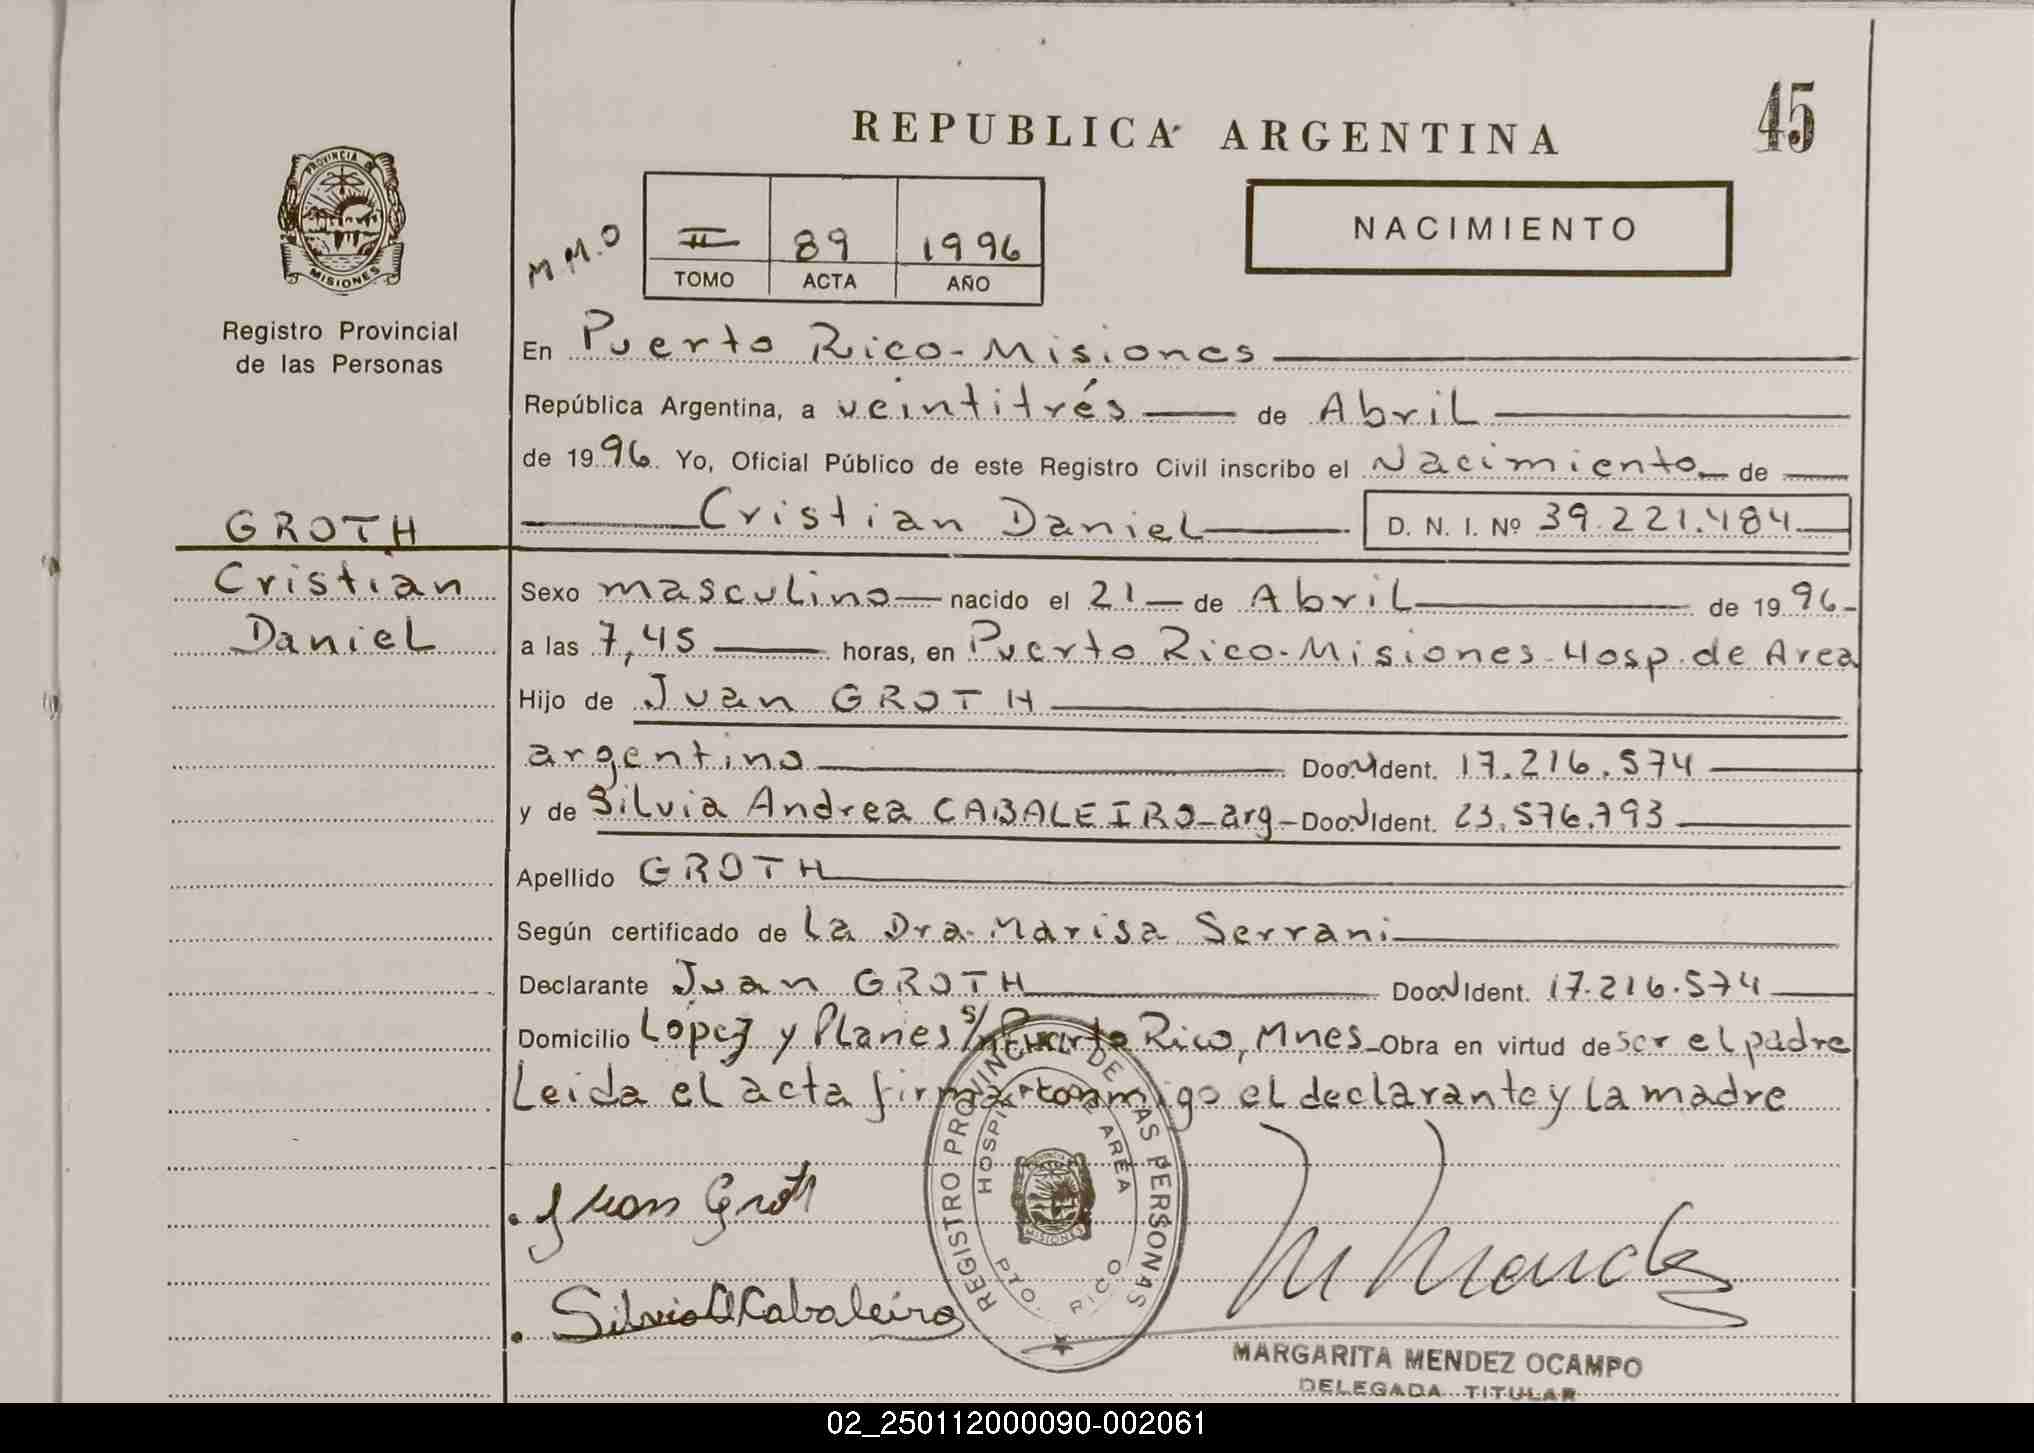 REPUBLICA ARGENTINA
45
PROVINCIA DE
MISIONES
Registro Provincial
de las Personas
M.M.O
II 89 1996
TOMO ACTA AÑO
NACIMIENTO
En Puerto Rico - Misiones
República Argentina, a veintitrés de Abril
de 1996. Yo, Oficial Público de este Registro Civil inscribo el Nacimiento de
Cristian Daniel D. N. I. Nº 39.221.484
GROTH
Cristian
Daniel
Sexo masculino nacido el 21 de Abril de 1996
a las 7,45 horas, en Puerto Rico - Misiones - Hosp. de Area
Hijo de Juan GROTH
argentino Ident. 17.216.574
y de Silvia Andrea CABALEIRO - arg - Ident. 23.576.793
Apellido GROTH
Según certificado de la Dra. Marisa Serrani
Declarante Juan GROTH Ident. 17.216.574
Domicilio Lopez y Planes s/n Puerto Rico, Mnes - Obra en virtud de ser el padre
Leida el acta firma conmigo el declarante y la madre
REGISTRO PROVINCIAL DE LAS PERSONAS
HOSPITAL DE AREA
PTO. RICO
MISIONES
Juan Groth
Silvia A Cabaleiro
MARGARITA MENDEZ OCAMPO
DELEGADA TITULAR
02_250112000090-002061